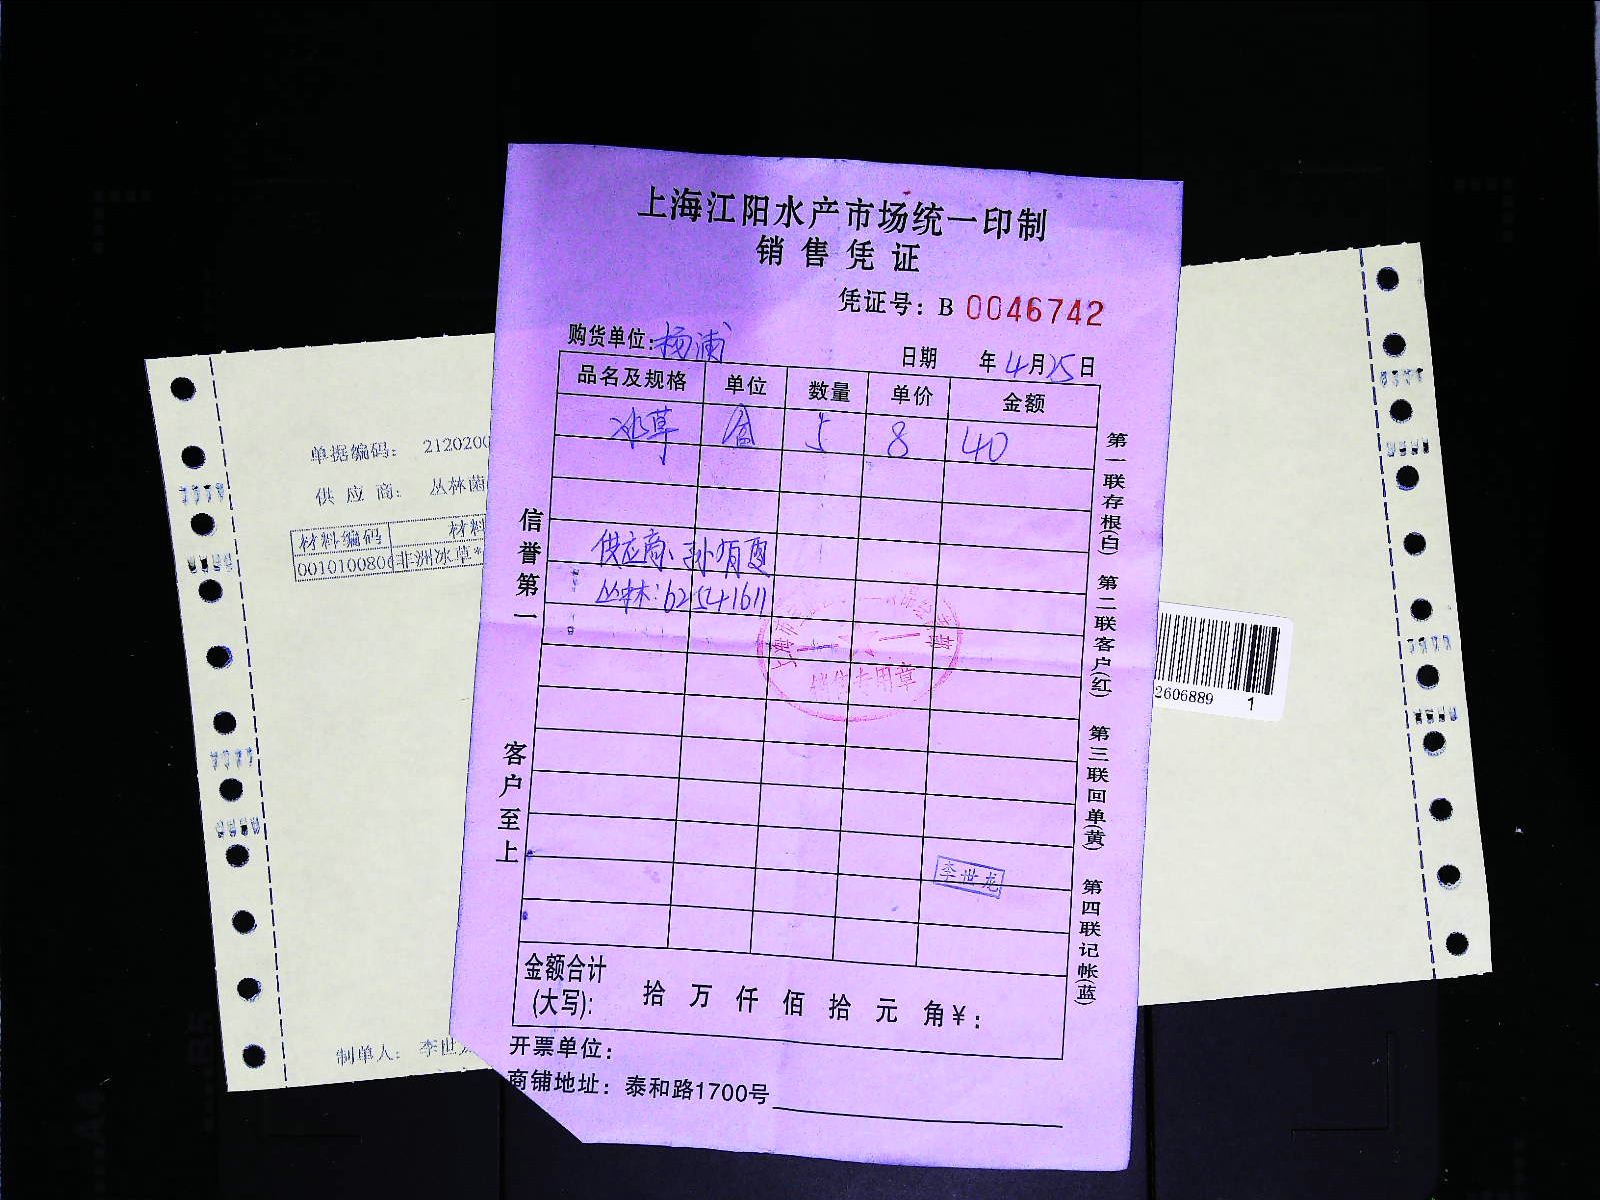 上海江阳水产市场统一印制
销售凭证
凭证号：B 0046742
购货单位：杨浦 日期 年4月25日
品名及规格 单位 数量 单价 金额
冰草 盒 5 8 40
供应商：孙有
丛林：62541611
销售专用章
李世龙
金额合计
(大写)： 拾 万 仟 佰 拾 元 角¥：
开票单位：
商铺地址：泰和路1700号
信誉第一
客户至上
第一联存根(白)
第二联客户(红)
第三联回单(黄)
第四联记帐(蓝)
单据编码： 2120200
供应商： 丛林菌
材料编码 材料
0010100806 非洲冰草*
制单人： 李世龙
2606889 1